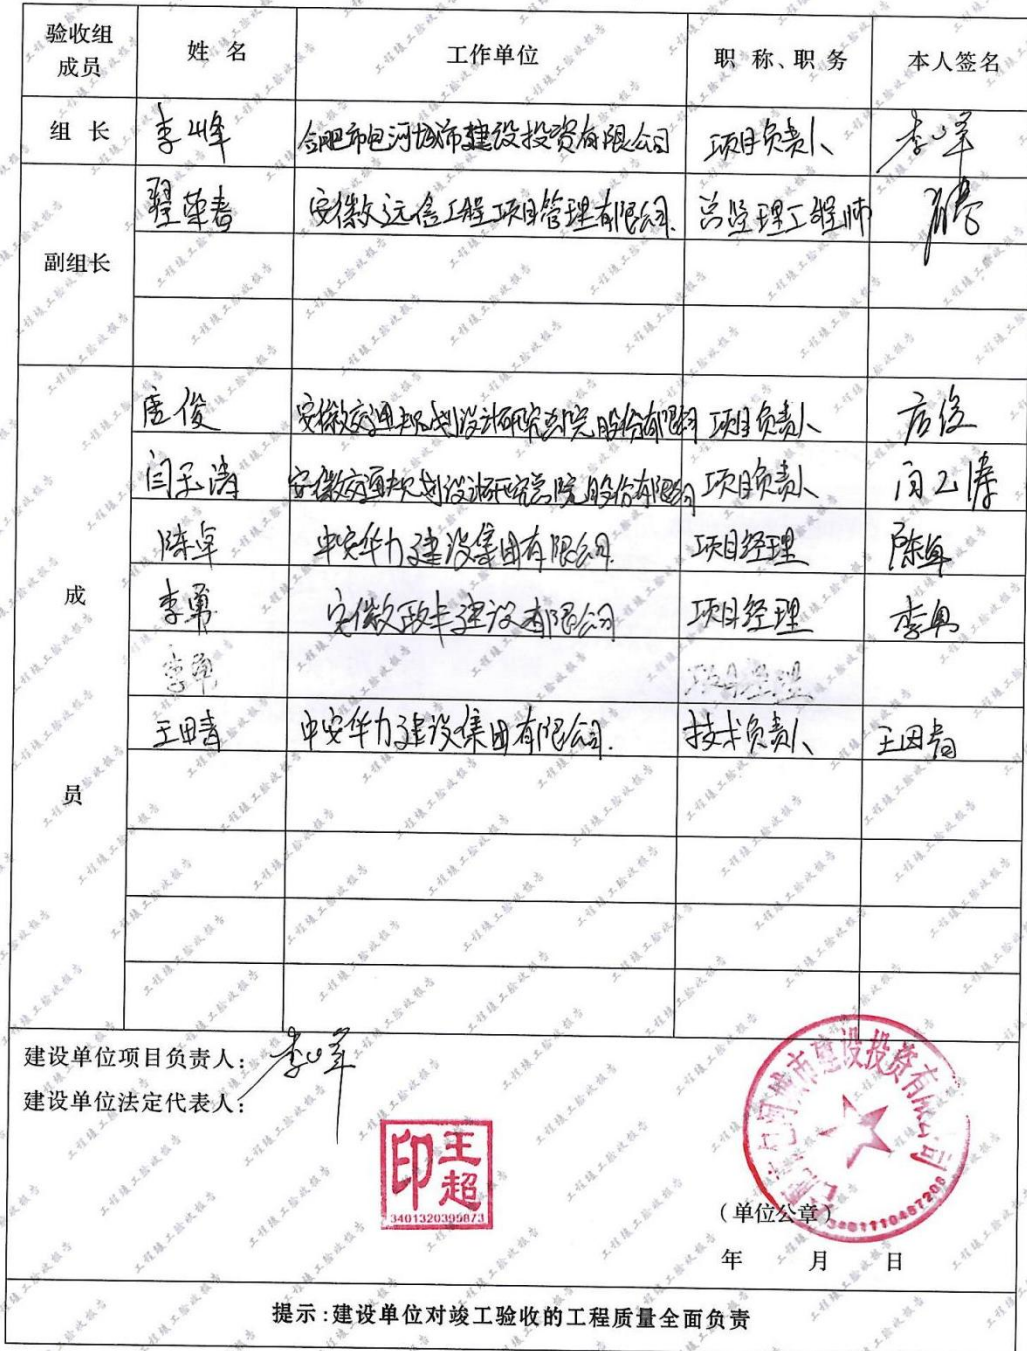 验收组成员 姓 名 工作单位 职 称、职 务 本人签名
组 长 李峰 合肥市包河城市建设投资有限公司 项目负责人 李峰
副组长 翟荣春 安徽文远信工程项目管理有限公司 总监理工程师
成员
唐俊 安徽交通规划设计研究总院股份有限公司 项目负责人 唐俊
闫玉涛 安徽交通规划设计研究总院股份有限公司 项目负责人 闫玉涛
陈卓 中安华力建设集团有限公司 项目经理 陈卓
李勇 安徽政丰建设有限公司 项目经理 李勇
李勇 项目经理
王田青 中安华力建设集团有限公司 技术负责人 王田青
建设单位项目负责人: 李峰
建设单位法定代表人:
王超印
3401320399873
合肥市包河城市建设投资有限公司
3401110487208
(单位公章)
年 月 日
提示:建设单位对竣工验收的工程质量全面负责
工程竣工验收报告